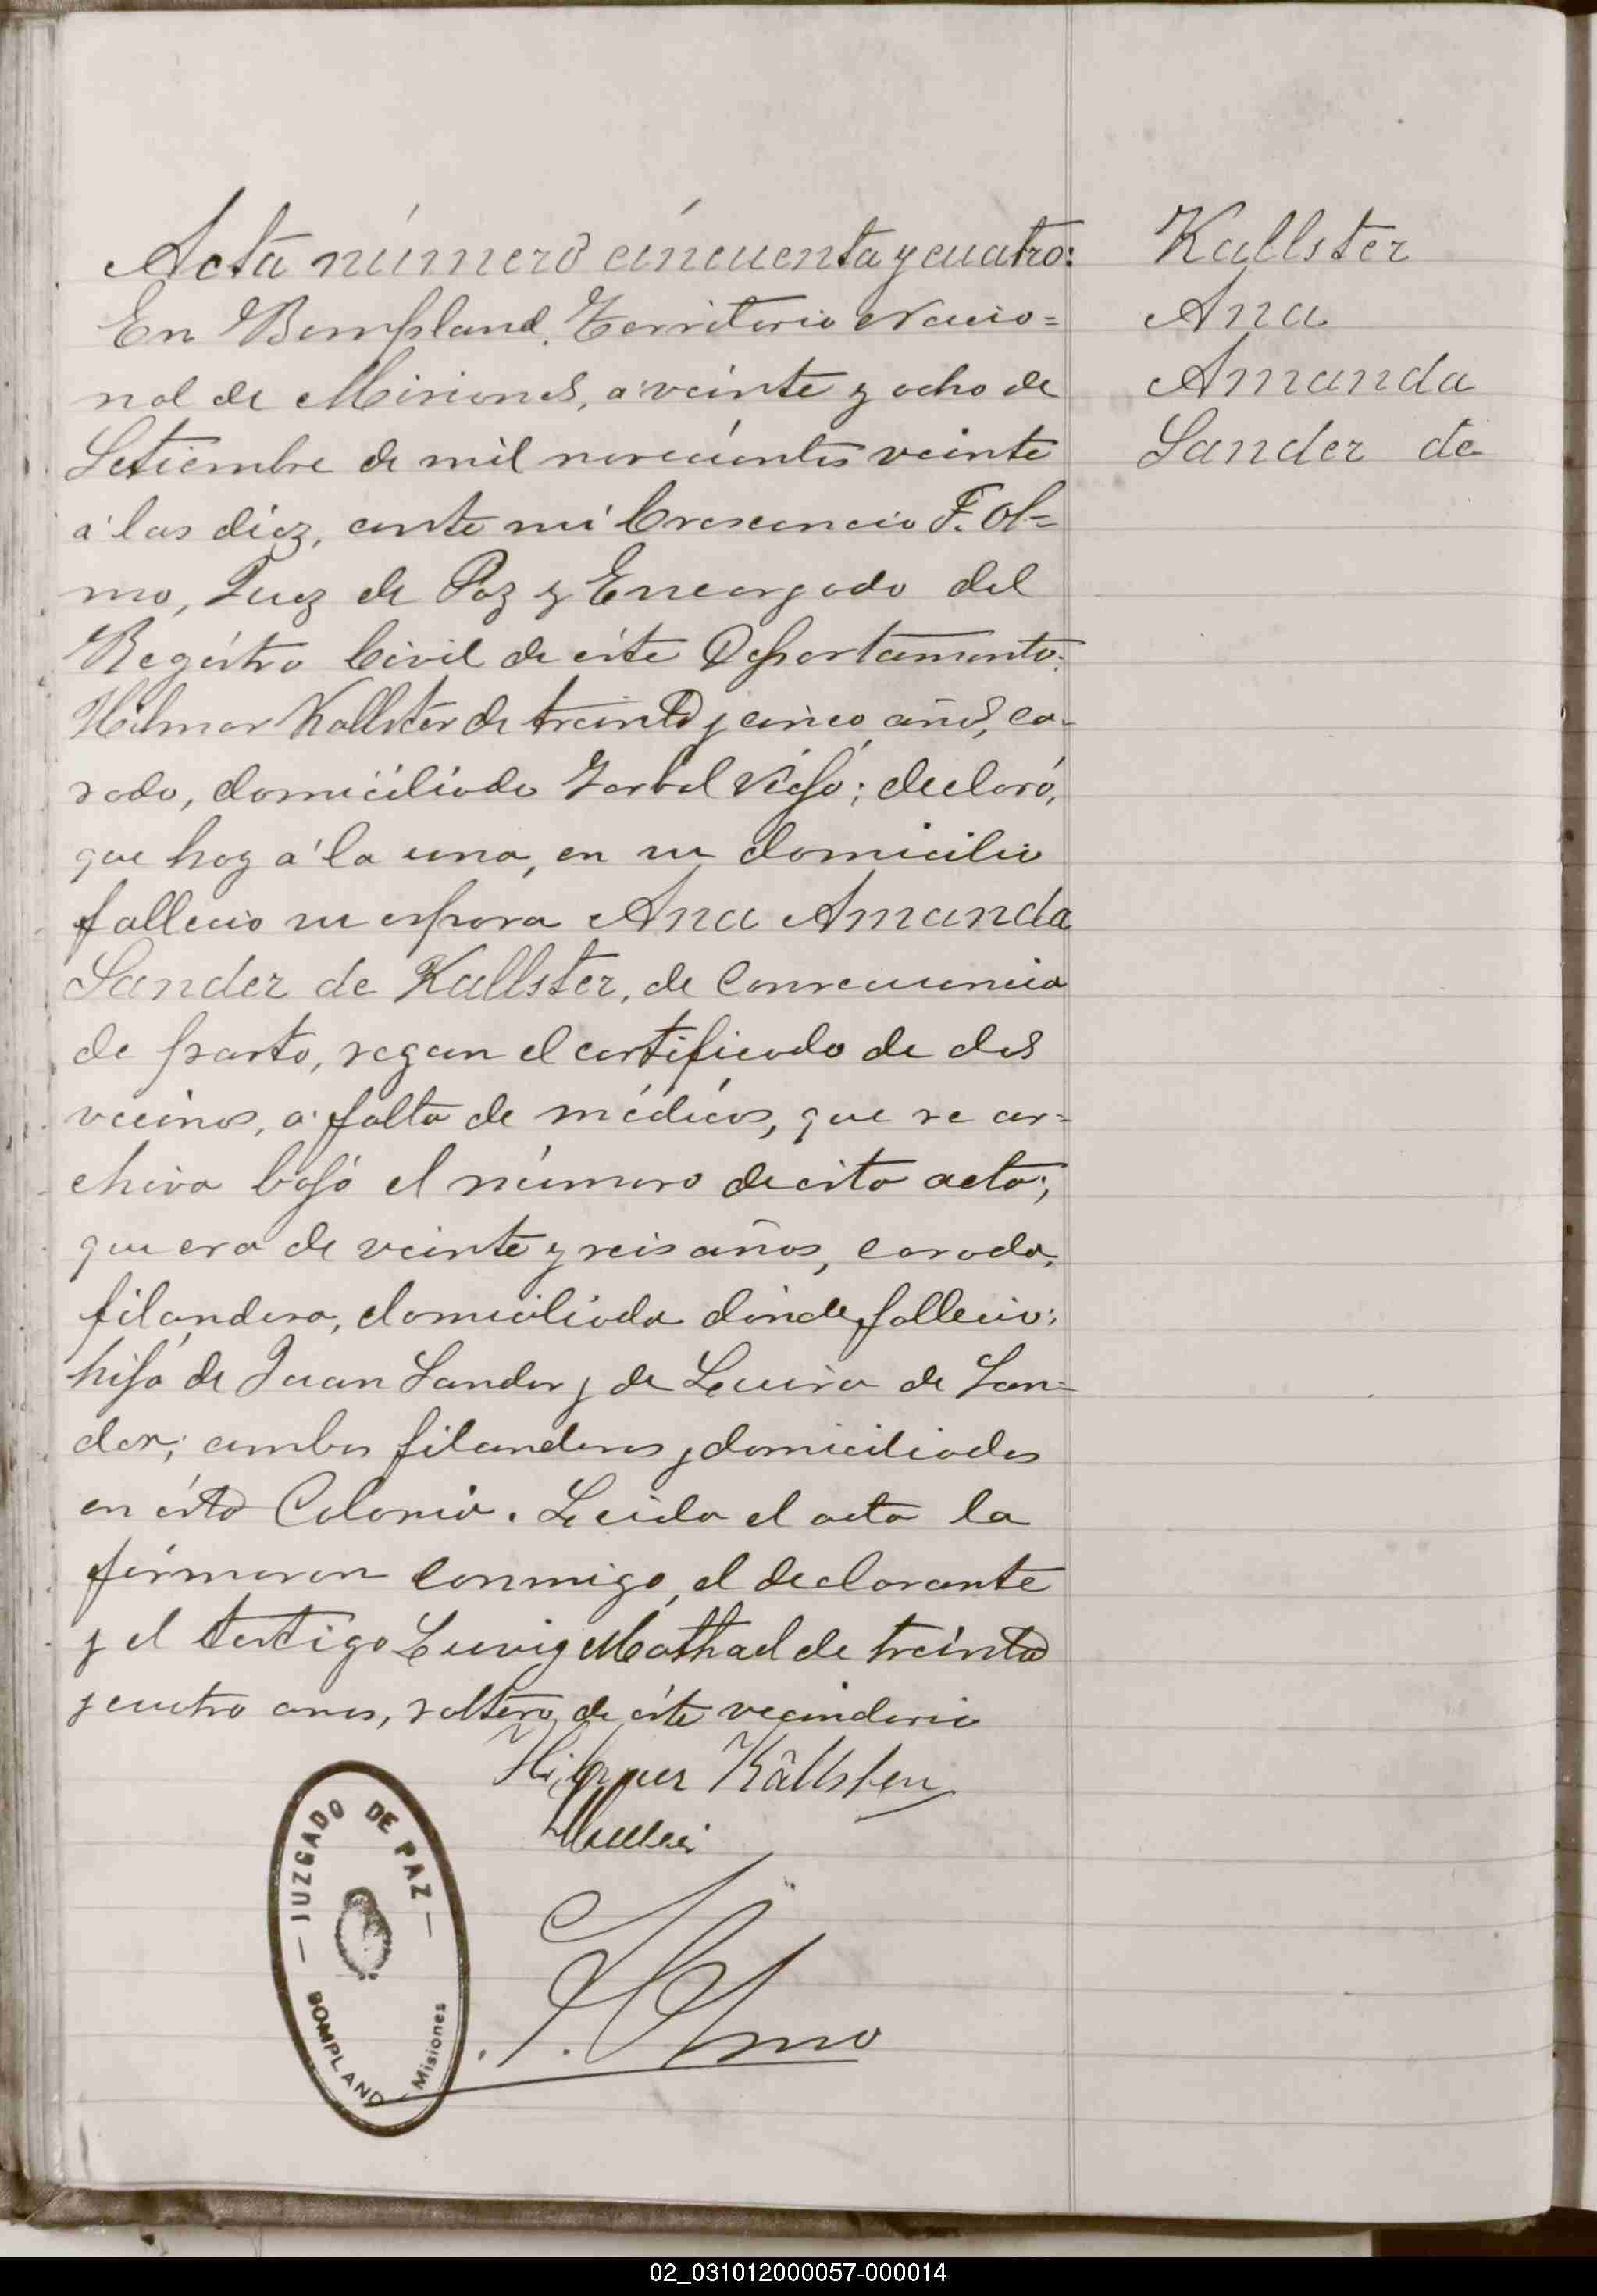 Acta número cincuenta y cuatro:
En Bompland, Territorio Nacio=
nal de Misiones, a veinte y ocho de
Setiembre de mil novecientos veinte
á las diez, ante mi Crescencio F. Ol=
mo, Juez de Paz y Encargado del
Registro Civil de éste Departamento:
Hilmar Kallster de treinta y cinco años, ca-
sado, domiciliado Yerbal Viejo; declaró,
que hoy á la una, en su domicilio
fallecio su esposa Ana Amanda
Sander de Kallster, de consecuencia
de parto, segun el certificado de dos
vecinos, a falta de médicos, que se ar=
chiva bajo el número de esta acta;
que era de veinte y seis años, casada,
filandesa, domiciliada dónde fallecio;
hija de Juan Sander y de Lovisa de San=
der; ambos filandeses y domiciliados
en ésta Colonia. Leida el acta la
firmaron conmigo, el declarante
y el testigo Mathael de treinta
y cuatro anos, soltero, de éste vecindario
Hilmer Källsten
F. Olmo
Kallster
Ana
Amanda
Sander de
— JUZGADO DE PAZ —
BOMPLAND Misiones
02_031012000057-000014